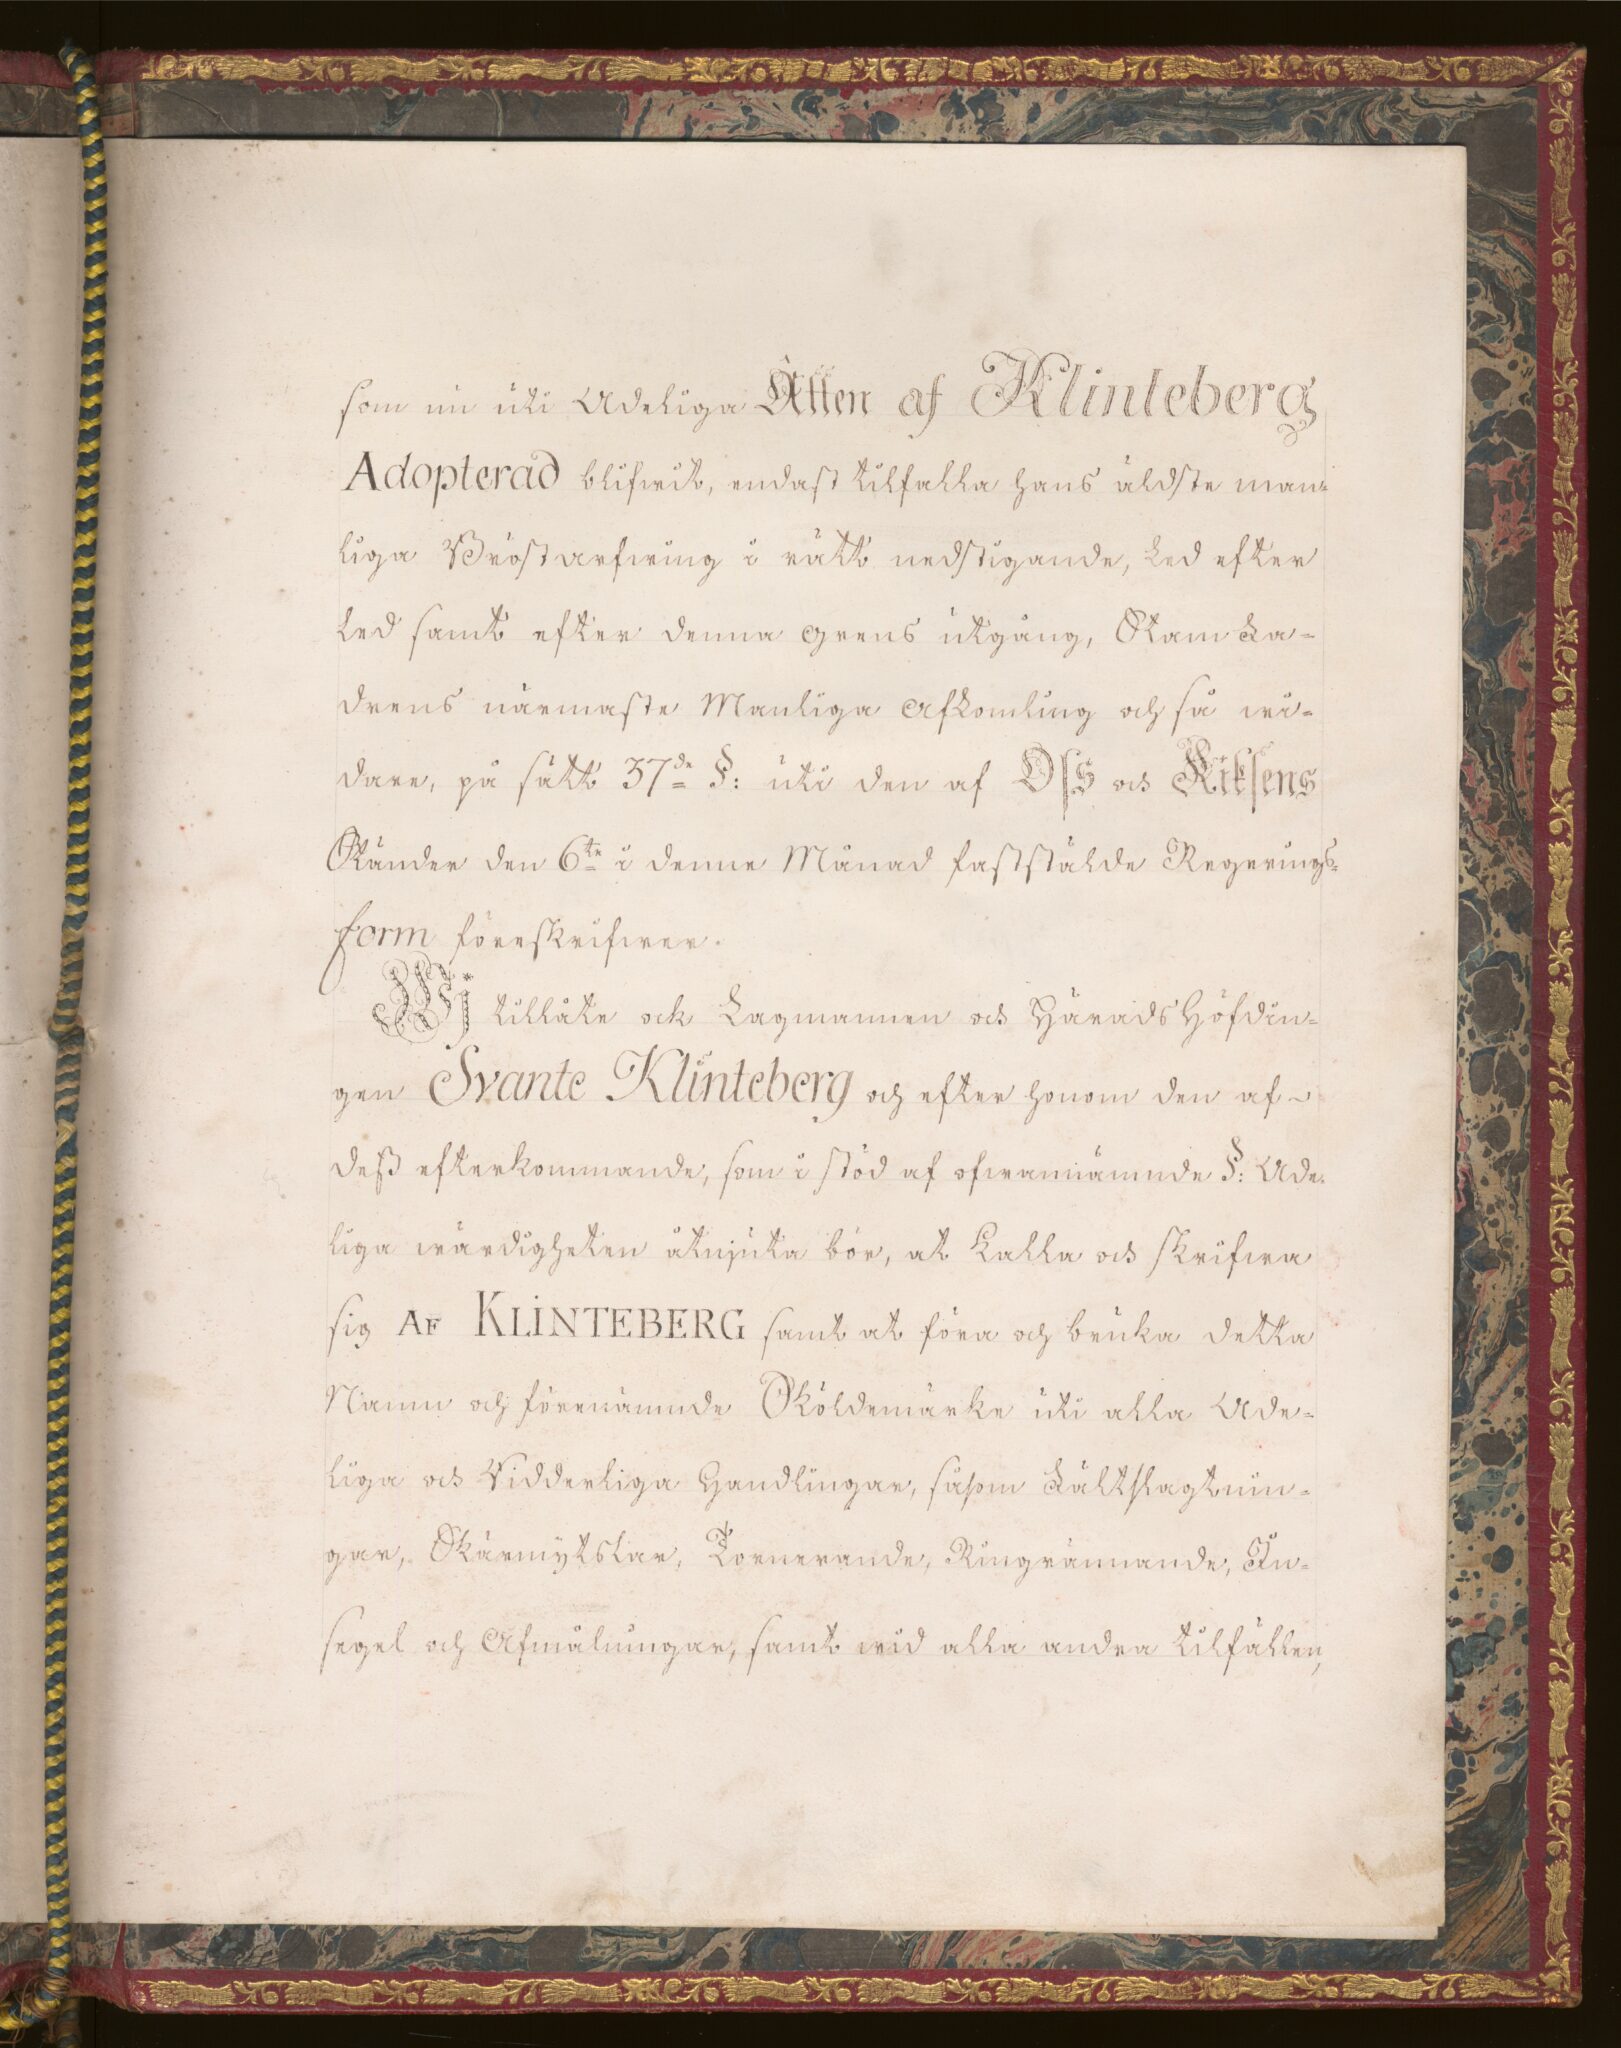 som nu uti Adeliga Ätten af Klinteberg
Adopterad blifwit, endast tilfalla hans äldste man-
liga Bröstarfwing i rätt nedstigande, Led efter
Led samt efter denna grens utgång, StamFa-
drens närmaste Manliga Afkomling och så wi-
dare, på sätt 37de §: uti den af Oss och Riksens
Ständer den 6te i denne Månad faststälde Regerings-
form föreskrifwer.
Wj tillåte ock Lagmannen och HäradsHöfdin-
gen Svante Klinteberg och efter honom den af
deß efterkommande, som i stöd af ofwannämnde §: Ade-
liga wärdigheten åtnjuta bör, at kalla och skrifwa
sig AF KLINTEBERG samt at föra och bruka detta
Namn och förenämnde Sköldemärke uti alla Ade-
liga och Ridderliga Handlingar, såsom Fältslagtnin-
gar, Skärmytslar, Tornerande, Ringrännande, In-
segel och Afmålningar, samt wid alla andra tilfällen,